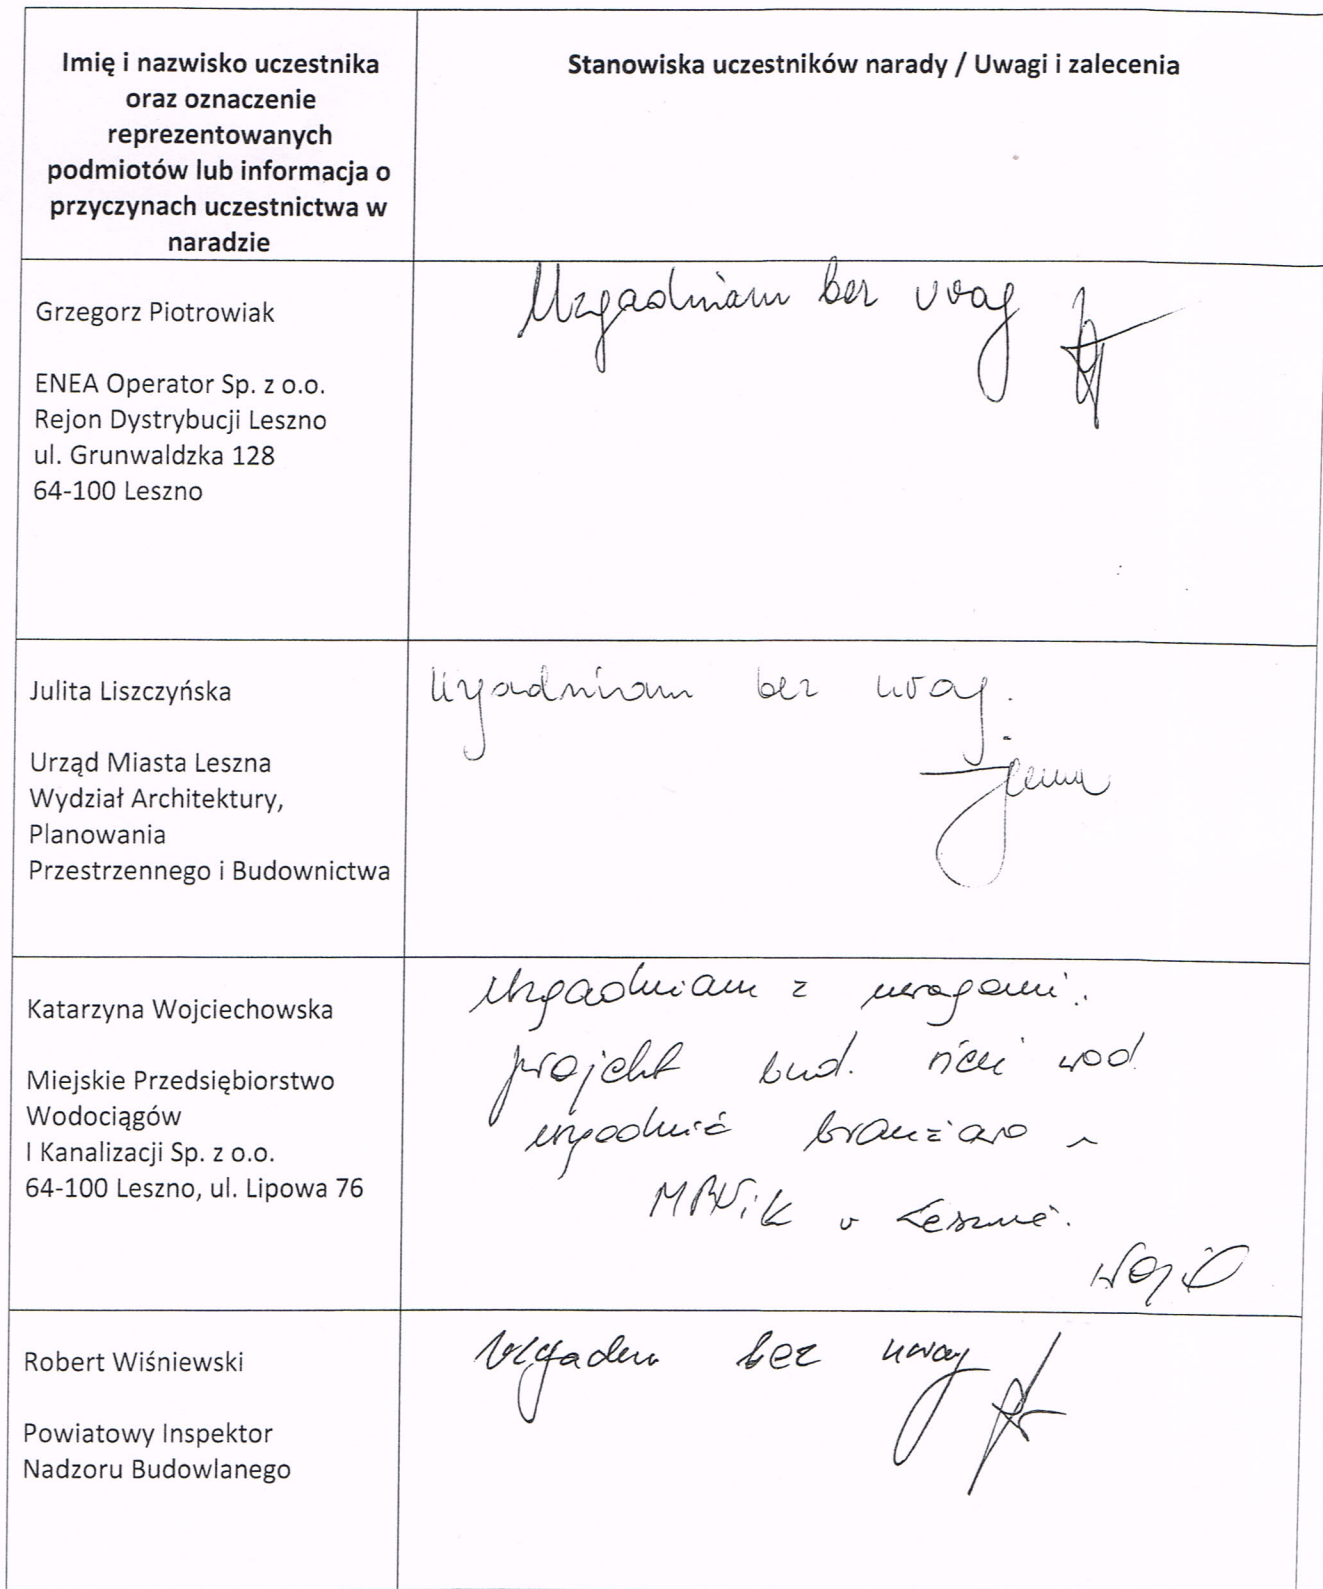 Imię i nazwisko uczestnika
oraz oznaczenie
reprezentowanych
podmiotów lub informacja o
przyczynach uczestnictwa w
naradzie
Stanowiska uczestników narady / Uwagi i zalecenia
Grzegorz Piotrowiak
ENEA Operator Sp. z o.o.
Rejon Dystrybucji Leszno
ul. Grunwaldzka 128
64-100 Leszno
Uzgadniam bez uwag
Julita Liszczyńska
Urząd Miasta Leszna
Wydział Architektury,
Planowania
Przestrzennego i Budownictwa
Uzgadniam bez uwag.
Katarzyna Wojciechowska
Miejskie Przedsiębiorstwo
Wodociągów
I Kanalizacji Sp. z o.o.
64-100 Leszno, ul. Lipowa 76
Uzgadniam z uwagami:
projekt bud. sieci wod
uzgodnić branżowo w
MPWiK w Lesznie.
Robert Wiśniewski
Powiatowy Inspektor
Nadzoru Budowlanego
bez uwag